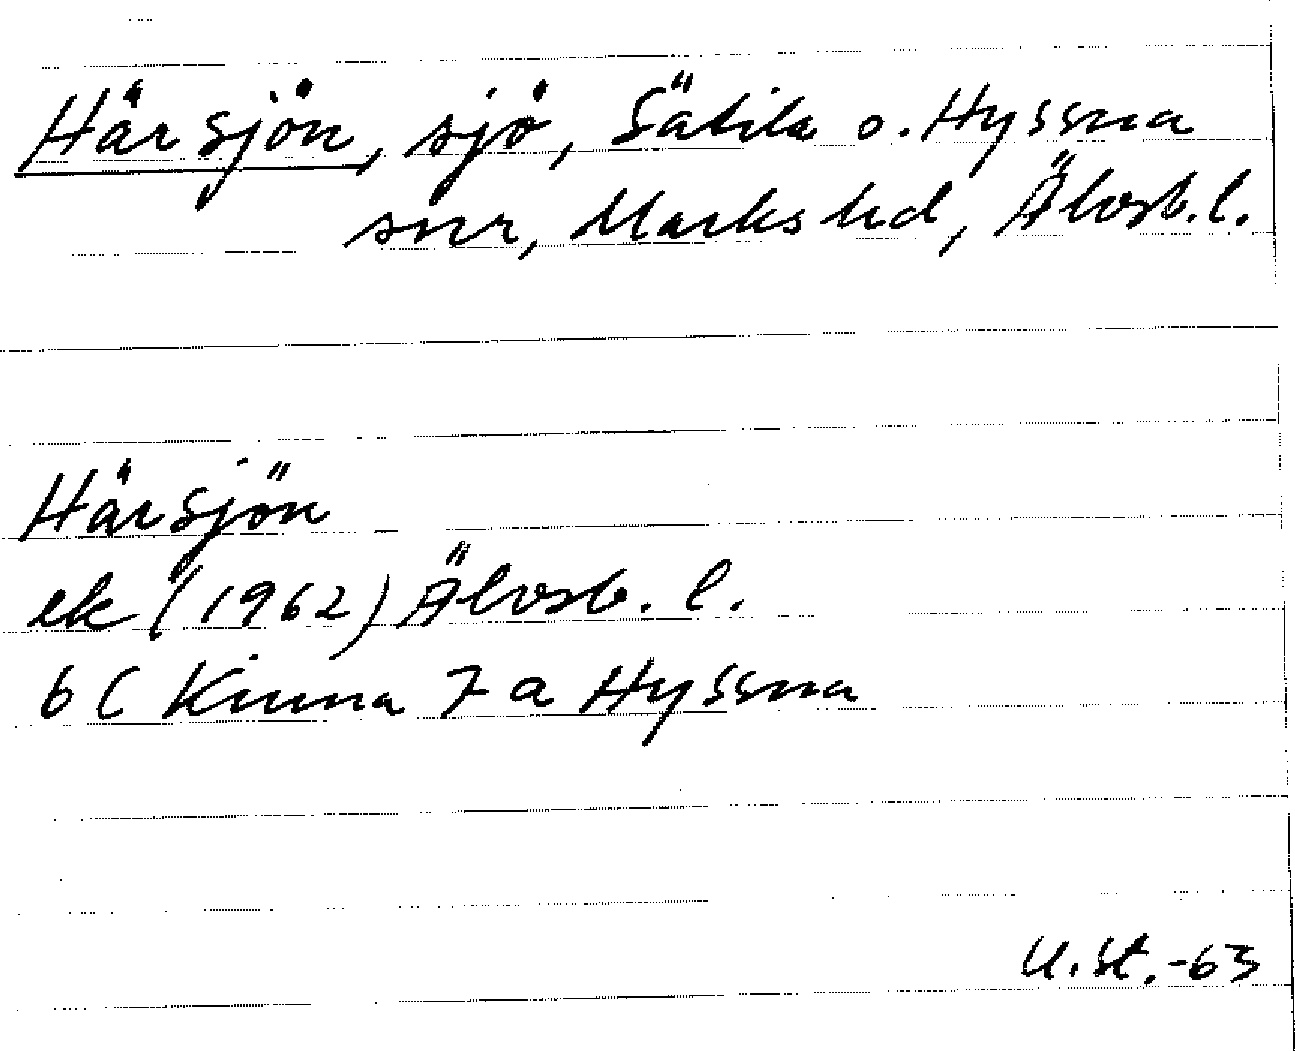 Härsjön, sjö, Sätila o. Hyssna
snr, Marks hd, Älvsb. l.
Härsjön
ek (1962) Älvsb. l.
6 C Kinna 7 a Hyssna
U. St. -63